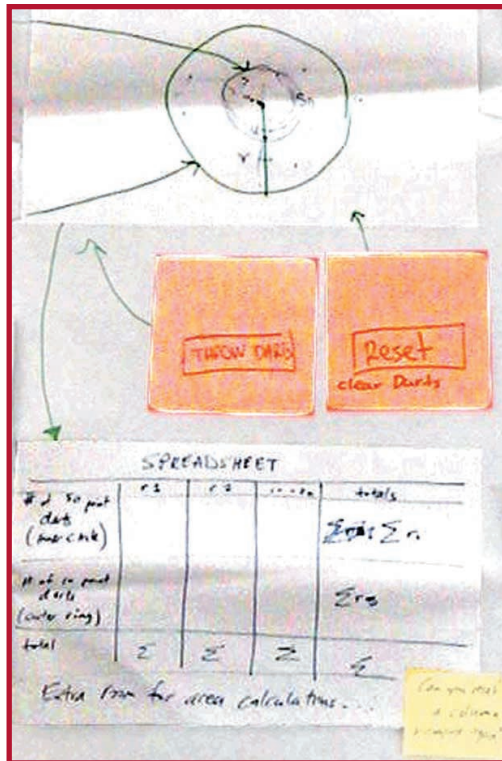 50
r
THROW DARTS
Reset
clear Darts
SPREADSHEET
r1 r2 totals
# of 50 point
darts
(inner circle)
Σ r
# of 10 point
darts
(outer ring)
Σ
total Σ Σ Σ Σ
Extra room for area calculations...
Can you
a column